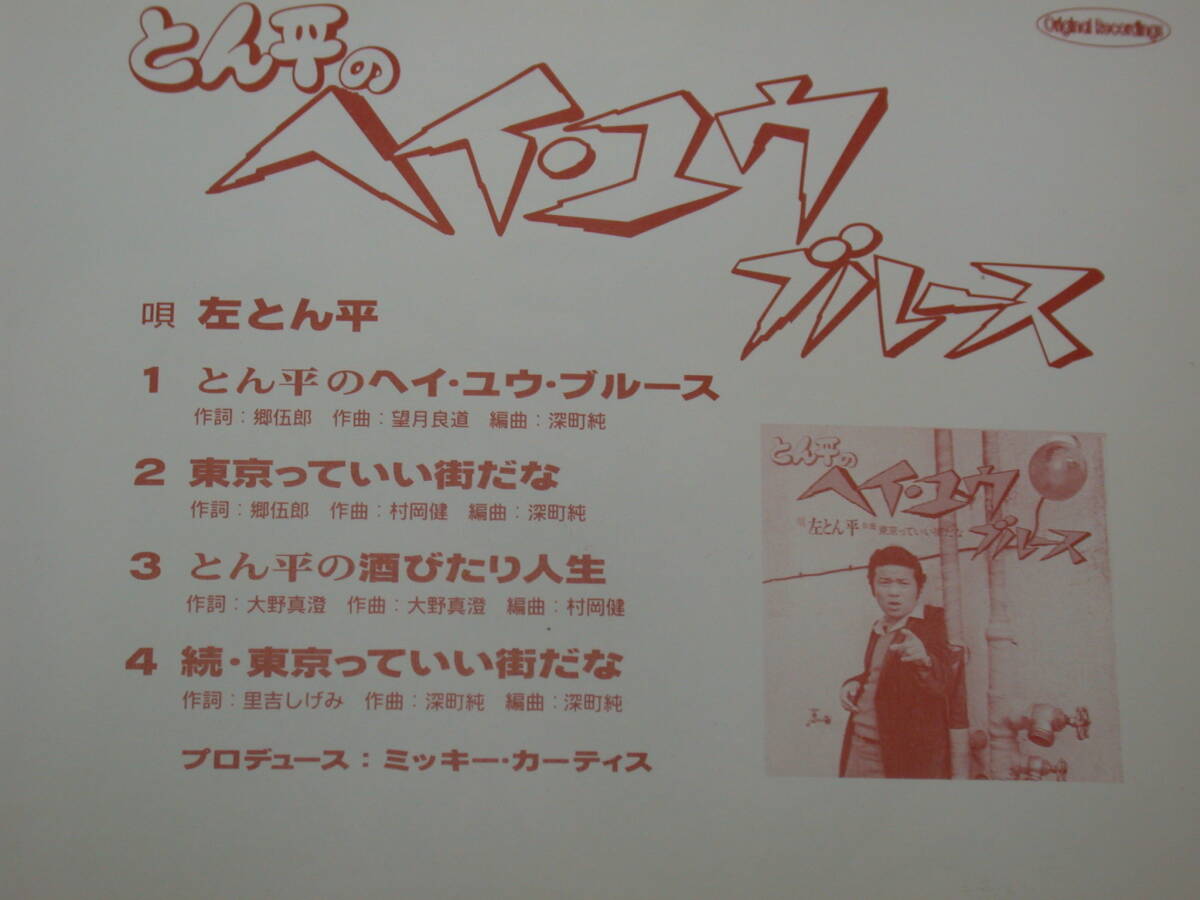 とん平の
Original Recordings
ヘイ・ユウ
ブルース
唄 左とん平
1 とん平のヘイ・ユウ・ブルース
作詞：郷伍郎 作曲：望月良道 編曲：深町純
2 東京っていい街だな
作詞：郷伍郎 作曲：村岡健 編曲：深町純
3 とん平の酒びたり人生
作詞：大野真澄 作曲：大野真澄 編曲：村岡健
4 続・東京っていい街だな
作詞：里吉しげみ 作曲：深町純 編曲：深町純
プロデュース：ミッキー・カーティス
とん平の
ヘイ・ユウ
ブルース
唄 左とん平 東京っていい街だな